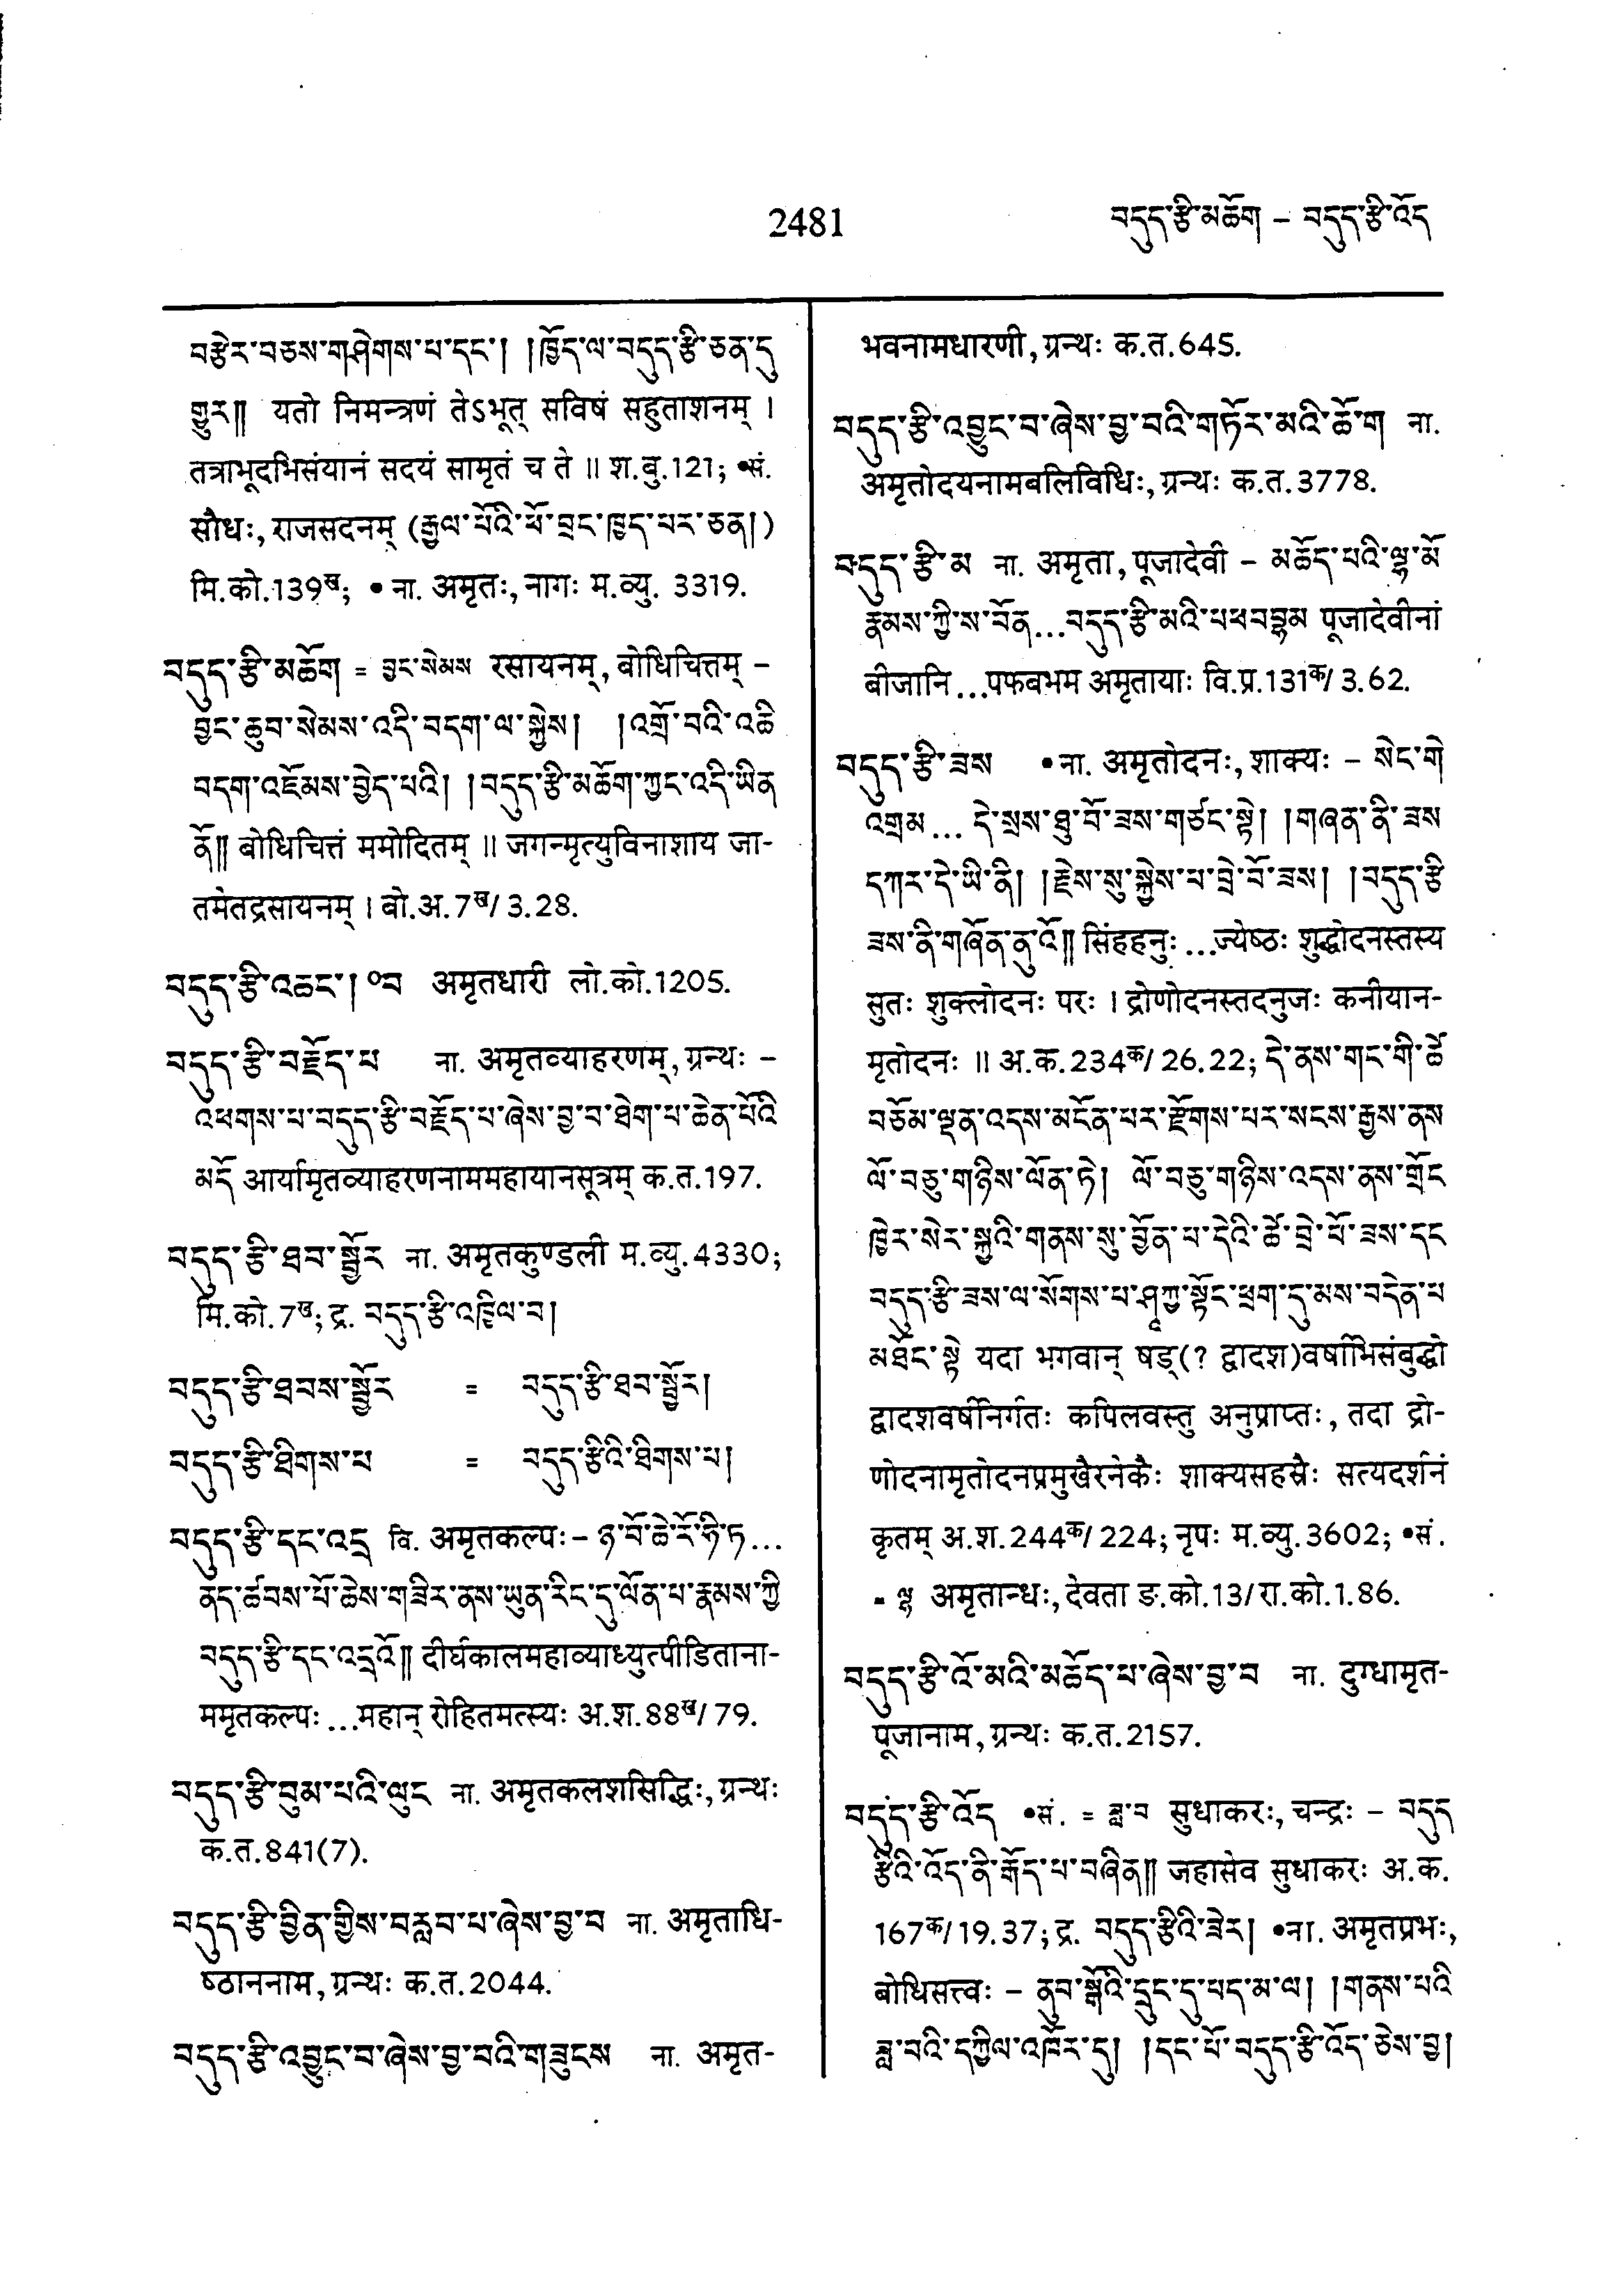 2481
བདུད་རྩི་མཆོག – བདུད་རྩི་འོད
བརྩེར་བཅས་གཤེགས་པ་དང་། །ཁྱོད་ལ་བདུད་རྩི་ཅན་དུ
གྱུར༎ यतो निमन्त्रणं तेऽभूत् सविषं सहुताशनम् ।
तत्राभूदभिसंयानं सदयं सामृतं च ते ॥ श.बु.121; •सं.
सौधः, राजसदनम् (རྒྱལ་པོའི་ཕོ་བྲང་ཁྱད་པར་ཅན།)
मि.को.139ख; • ना. अमृतः, नागः म.व्यु. 3319.
བདུད་རྩི་མཆོག = བྱང་སེམས रसायनम्, बोधिचित्तम् –
བྱང་ཆུབ་སེམས་འདི་བདག་ལ་སྐྱེས། །འགྲོ་བའི་འཆི
བདག་འཇོམས་བྱེད་པའི། །བདུད་རྩི་མཆོག་ཀྱང་འདི་ཡིན
ནོ༎ बोधिचित्तं ममोदितम् ॥ जगन्मृत्युविनाशाय जा-
तमेतद्रसायनम् । बो.अ.7ख/3.28.
བདུད་རྩི་འཆང་། °བ अमृतधारी लो.को.1205.
བདུད་རྩི་བརྗོད་པ ना. अमृतव्याहरणम्, ग्रन्थः –
འཕགས་པ་བདུད་རྩི་བརྗོད་པ་ཞེས་བྱ་བ་ཐེག་པ་ཆེན་པོའི
མདོ आर्यामृतव्याहरणनाममहायानसूत्रम् क.त.197.
བདུད་རྩི་ཐབ་སྦྱོར ना. अमृतकुण्डली म.व्यु.4330;
मि.को.7ख; द्र. བདུད་རྩི་འཁྱིལ་བ།
བདུད་རྩི་ཐབས་སྦྱོར = བདུད་རྩི་ཐབ་སྦྱོར།
བདུད་རྩི་ཐིགས་པ = བདུད་རྩིའི་ཐིགས་པ།
བདུད་རྩི་དང་འདྲ वि. अमृतकल्पः – ཉ་བོ་ཆེ་རོ་ཧི་ཏ...
ནད་ཚབས་པོ་ཆེས་གཟིར་ནས་ཡུན་རིང་དུ་ལོན་པ་རྣམས་ཀྱི
བདུད་རྩི་དང་འདྲའོ༎ दीर्घकालमहाव्याध्युत्पीडिताना-
ममृतकल्पः ...महान् रोहितमत्स्यः अ.श.88ख/79.
བདུད་རྩི་བུམ་པའི་ལུང ना. अमृतकलशसिद्धिः, ग्रन्थः
क.त.841(7).
བདུད་རྩི་བྱིན་གྱིས་བརླབ་པ་ཞེས་བྱ་བ ना. अमृताधि-
ष्ठाननाम, ग्रन्थः क.त.2044.
བདུད་རྩི་འབྱུང་བ་ཞེས་བྱ་བའི་གཟུངས ना. अमृत-
भवनामधारणी, ग्रन्थः क.त.645.
བདུད་རྩི་འབྱུང་བ་ཞེས་བྱ་བའི་གཏོར་མའི་ཆོ་ག ना.
अमृतोदयनामबलिविधिः, ग्रन्थः क.त.3778.
བདུད་རྩི་མ ना. अमृता, पूजादेवी – མཆོད་པའི་ལྷ་མོ
རྣམས་ཀྱི་ས་བོན...བདུད་རྩི་མའི་པཕབབྷམ पूजादेवीनां
बीजानि ...पफबभम अमृतायाः वि.प्र.131क/3.62.
བདུད་རྩི་ཟས •ना. अमृतोदनः, शाक्यः – སེང་གེ
འགྲམ... དེ་སྲས་ཐུ་བོ་ཟས་གཙང་སྟེ། །གཞན་ནི་ཟས
དཀར་དེ་ཡི་ནི། །རྗེས་སུ་སྐྱེས་པ་བྲེ་བོ་ཟས། །བདུད་རྩི
ཟས་ནི་གཞོན་ནུ་འོ༎ सिंहहनुः ...ज्येष्ठः शुद्धोदनस्तस्य
सुतः शुक्लोदनः परः । द्रोणोदनस्तदनुजः कनीयान-
मृतोदनः ॥ अ.क.234क/26.22; དེ་ནས་གང་གི་ཚེ
བཅོམ་ལྡན་འདས་མངོན་པར་རྫོགས་པར་སངས་རྒྱས་ནས
ལོ་བཅུ་གཉིས་ལོན་ཏེ། ལོ་བཅུ་གཉིས་འདས་ནས་གྲོང
ཁྱེར་སེར་སྐྱའི་གནས་སུ་བྱོན་པ་དེའི་ཚེ་བྲེ་པོ་ཟས་དང
བདུད་རྩི་ཟས་ལ་སོགས་པ་ཤཱཀྱ་སྟོང་ཕྲག་དུ་མས་བདེན་པ
མཐོང་སྟེ यदा भगवान् षड्(? द्वादश)वर्षाभिसंबुद्धो
द्वादशवर्षनिर्गतः कपिलवस्तु अनुप्राप्तः, तदा द्रो-
णोदनामृतोदनप्रमुखैरनेकैः शाक्यसहस्रैः सत्यदर्शनं
कृतम् अ.श.244क/224; नृपः म.व्यु.3602; •सं.
= ལྷ अमृतान्धः, देवता ङ.को.13/रा.को.1.86.
བདུད་རྩི་འོ་མའི་མཆོད་པ་ཞེས་བྱ་བ ना. दुग्धामृत-
पूजानाम, ग्रन्थः क.त.2157.
བདུད་རྩི་འོད •सं. = ཟླ་བ सुधाकरः, चन्द्रः – བདུད
རྩིའི་འོད་ནི་རྒོད་པ་བཞིན༎ जहासेव सुधाकरः अ.क.
167क/19.37; द्र. བདུད་རྩིའི་ཟེར། •ना. अमृतप्रभः,
बोधिसत्त्वः – ནུབ་སྒོའི་དྲུང་དུ་པད་མ་ལ། །གནས་པའི
ཟླ་བའི་དཀྱིལ་འཁོར་དུ། །དང་པོ་བདུད་རྩི་འོད་ཅེས་བྱ།